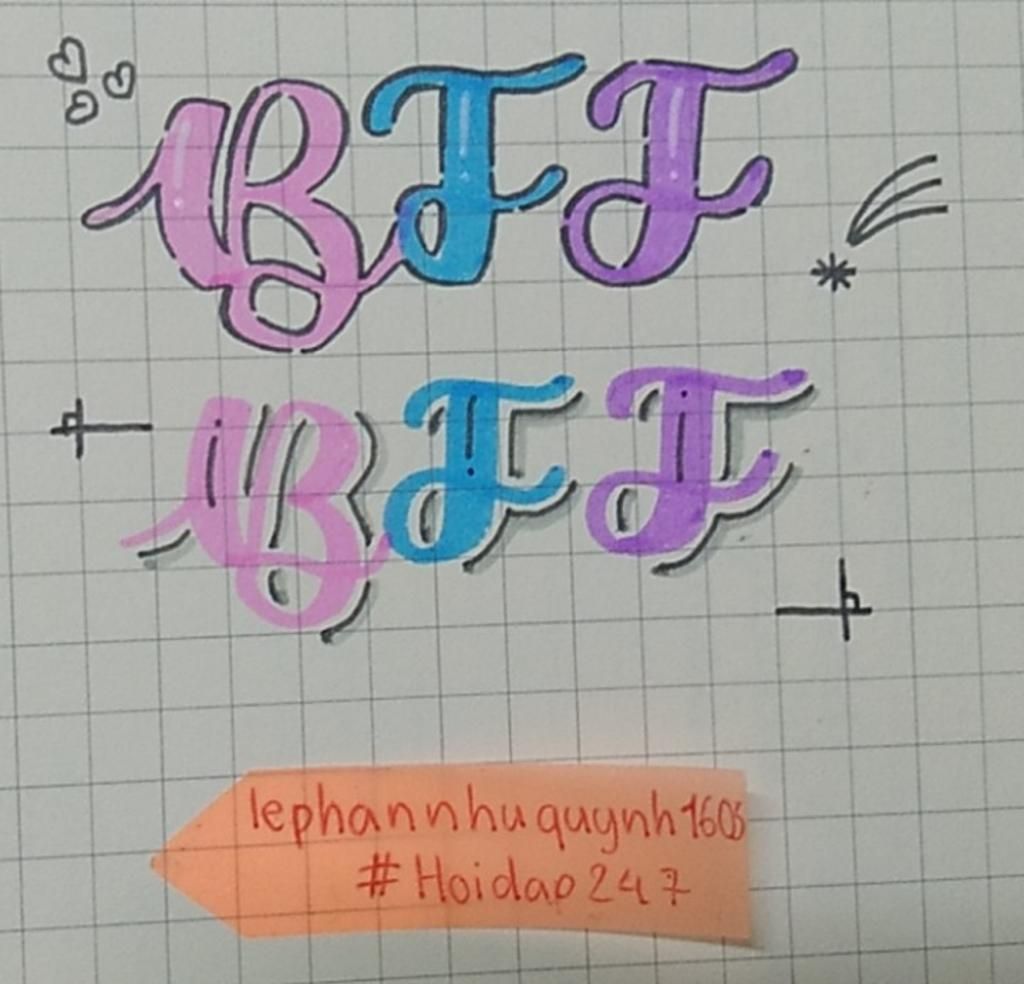 BFF
BFF
lephannhuquynh1605
#Hoidap247